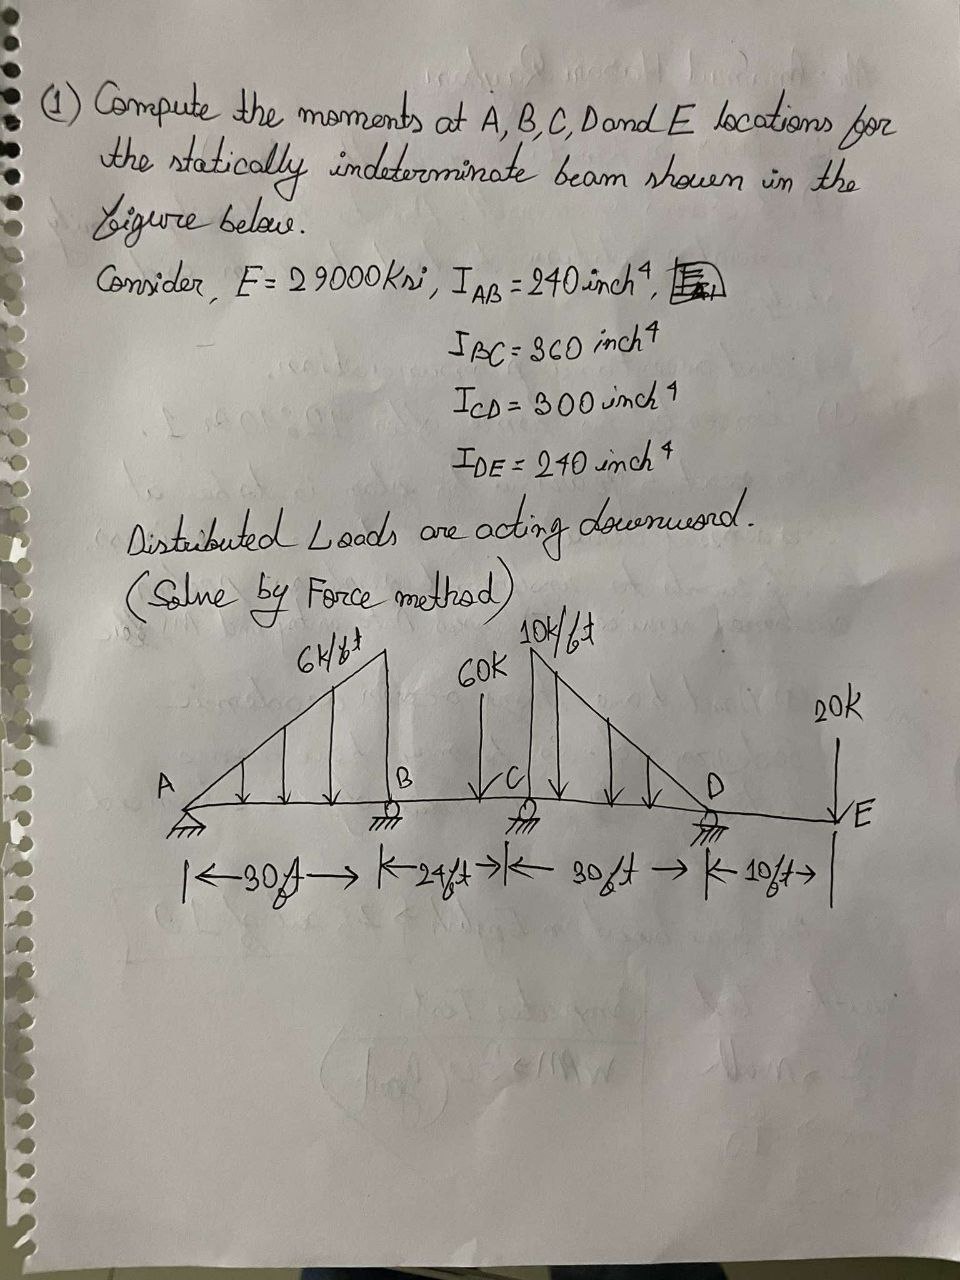 (1) Compute the moments at A, B, C, D and E locations for
the statically indeterminate beam shown in the
figure below.
Consider, E = 29000 Ksi, I AB = 240 inch⁴,
I BC = 360 inch⁴
I CD = 300 inch⁴
I DE = 240 inch⁴
Distributed Loads are acting downward.
(Solve by Force method)
6k/ft 60k 10k/ft 20k
A B C D E
30ft 24ft 30ft 10ft